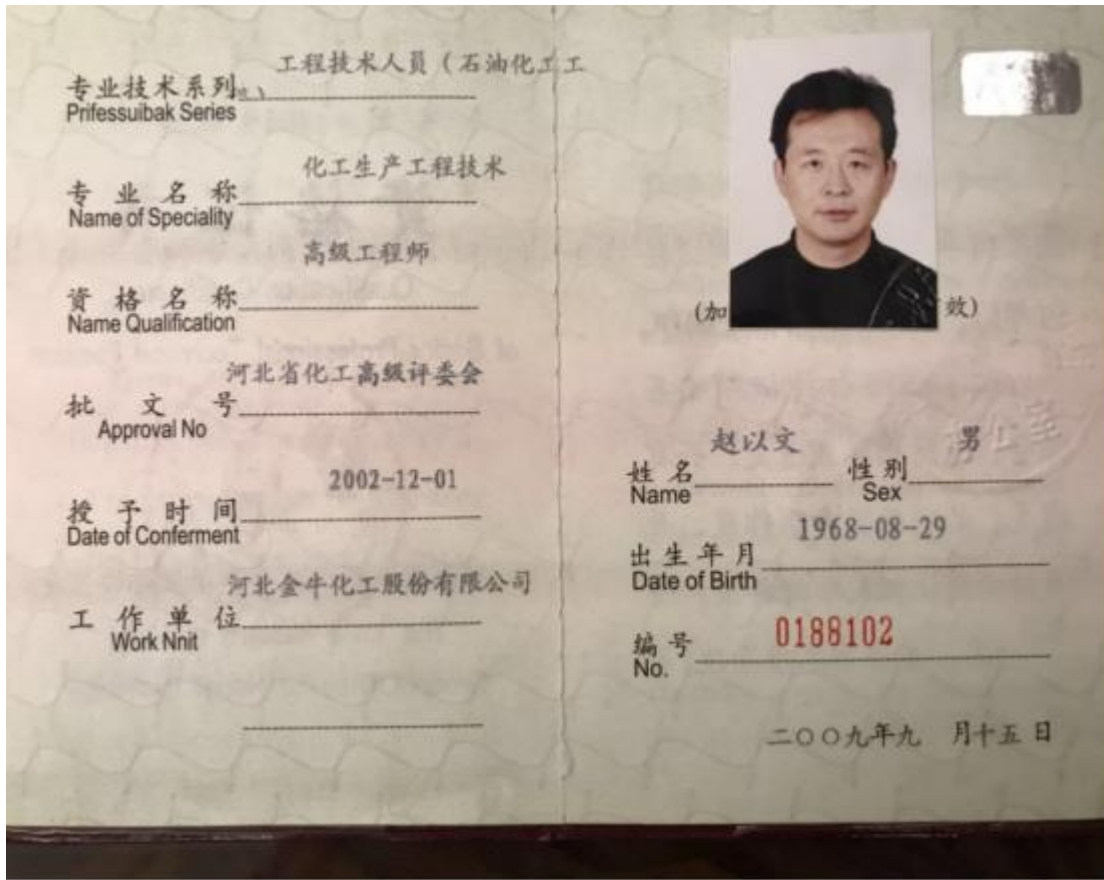 工程技术人员（石油化工工
专业技术系列
Prifessuibak Series
化工生产工程技术
专业名称
Name of Speciality
高级工程师
资格名称
Name Qualification
河北省化工高级评委会
批文号
Approval No
2002-12-01
授予时间
Date of Conferment
河北金牛化工股份有限公司
工作单位
Work Nnit
(加 效)
赵以文 男
姓名 性别
Name Sex
1968-08-29
出生年月
Date of Birth
0188102
编号
No.
二〇〇九年九 月十五日